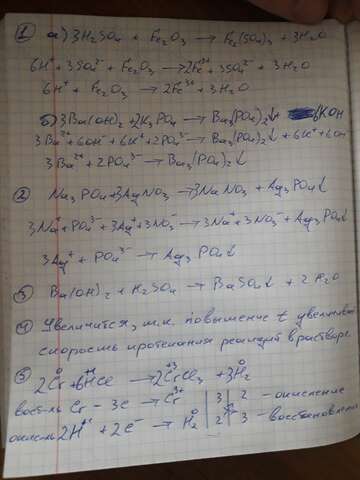 ① а) 3H₂SO₄ + Fe₂O₃ → Fe₂(SO₄)₃ + 3H₂O
6H⁺ + 3SO₄²⁻ + Fe₂O₃ → 2Fe³⁺ + 3SO₄²⁻ + 3H₂O
6H⁺ + Fe₂O₃ → 2Fe³⁺ + 3H₂O
б) 3Ba(OH)₂ + 2K₃PO₄ → Ba₃(PO₄)₂↓ + 6KOH
3Ba²⁺ + 6OH⁻ + 6K⁺ + 2PO₄³⁻ → Ba₃(PO₄)₂↓ + 6K⁺ + 6OH
3Ba²⁺ + 2PO₄³⁻ → Ba₃(PO₄)₂↓
② Na₃PO₄ + 3AgNO₃ → 3NaNO₃ + Ag₃PO₄↓
3Na⁺ + PO₄³⁻ + 3Ag⁺ + 3NO₃⁻ → 3Na⁺ + 3NO₃⁻ + Ag₃PO₄↓
3Ag⁺ + PO₄³⁻ → Ag₃PO₄↓
③ Ba(OH)₂ + H₂SO₄ → BaSO₄↓ + 2H₂O
④ Увеличится, т.к. повышение t увеличив
скорость протекания реакций в растворе
⑤ 2Cr⁰ + 6H⁺Cl → 2Cr⁺³Cl₃ + 3H₂⁰
восст-ль Cr − 3e → Cr³⁺ | 3 | 2 − окисление
окисль 2H⁺ + 2e⁻ → H₂⁰ | 2 | 3 − восстановлен